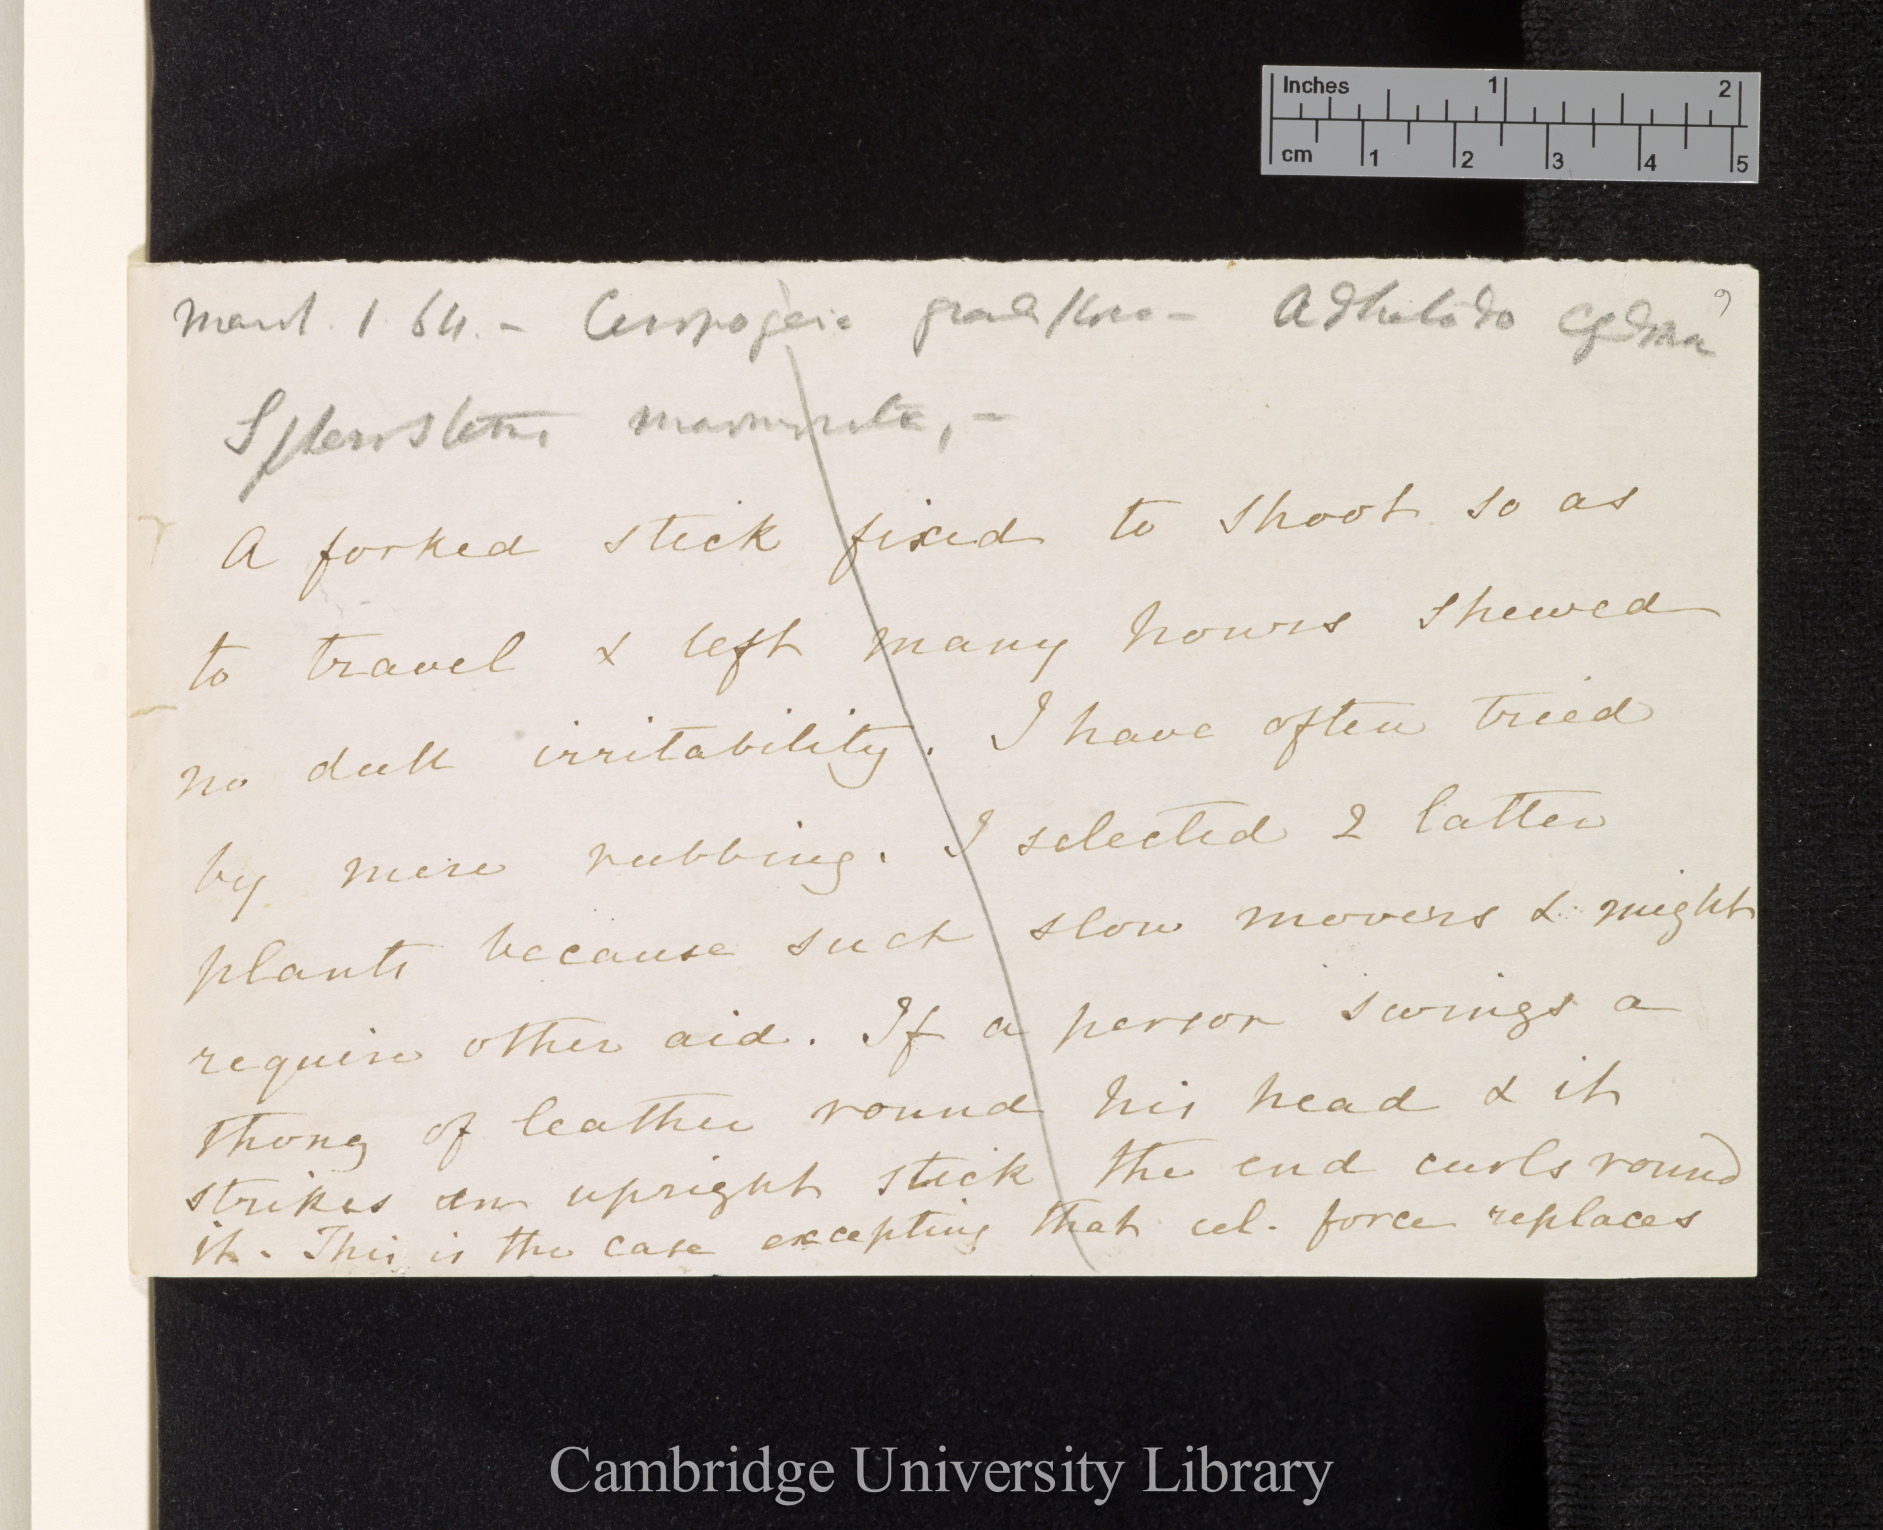 Inches 1 2
cm 1 2 3 4 5
March 1. 64. — Ceropegia — Adhatoda
9
Sphaerostema marmorata, —
A forked stick fixed to shoot so as
to travel & left many hours shewed
no dull irritability. I have often tried
by mere rubbing. I selected 2 latter
plants because such slow movers & might
require other aid. If a person swings a
thong of leather round his head & it
strikes an upright stick the end curls round
it. This is the case excepting that cel. force replaces
Cambridge University Library